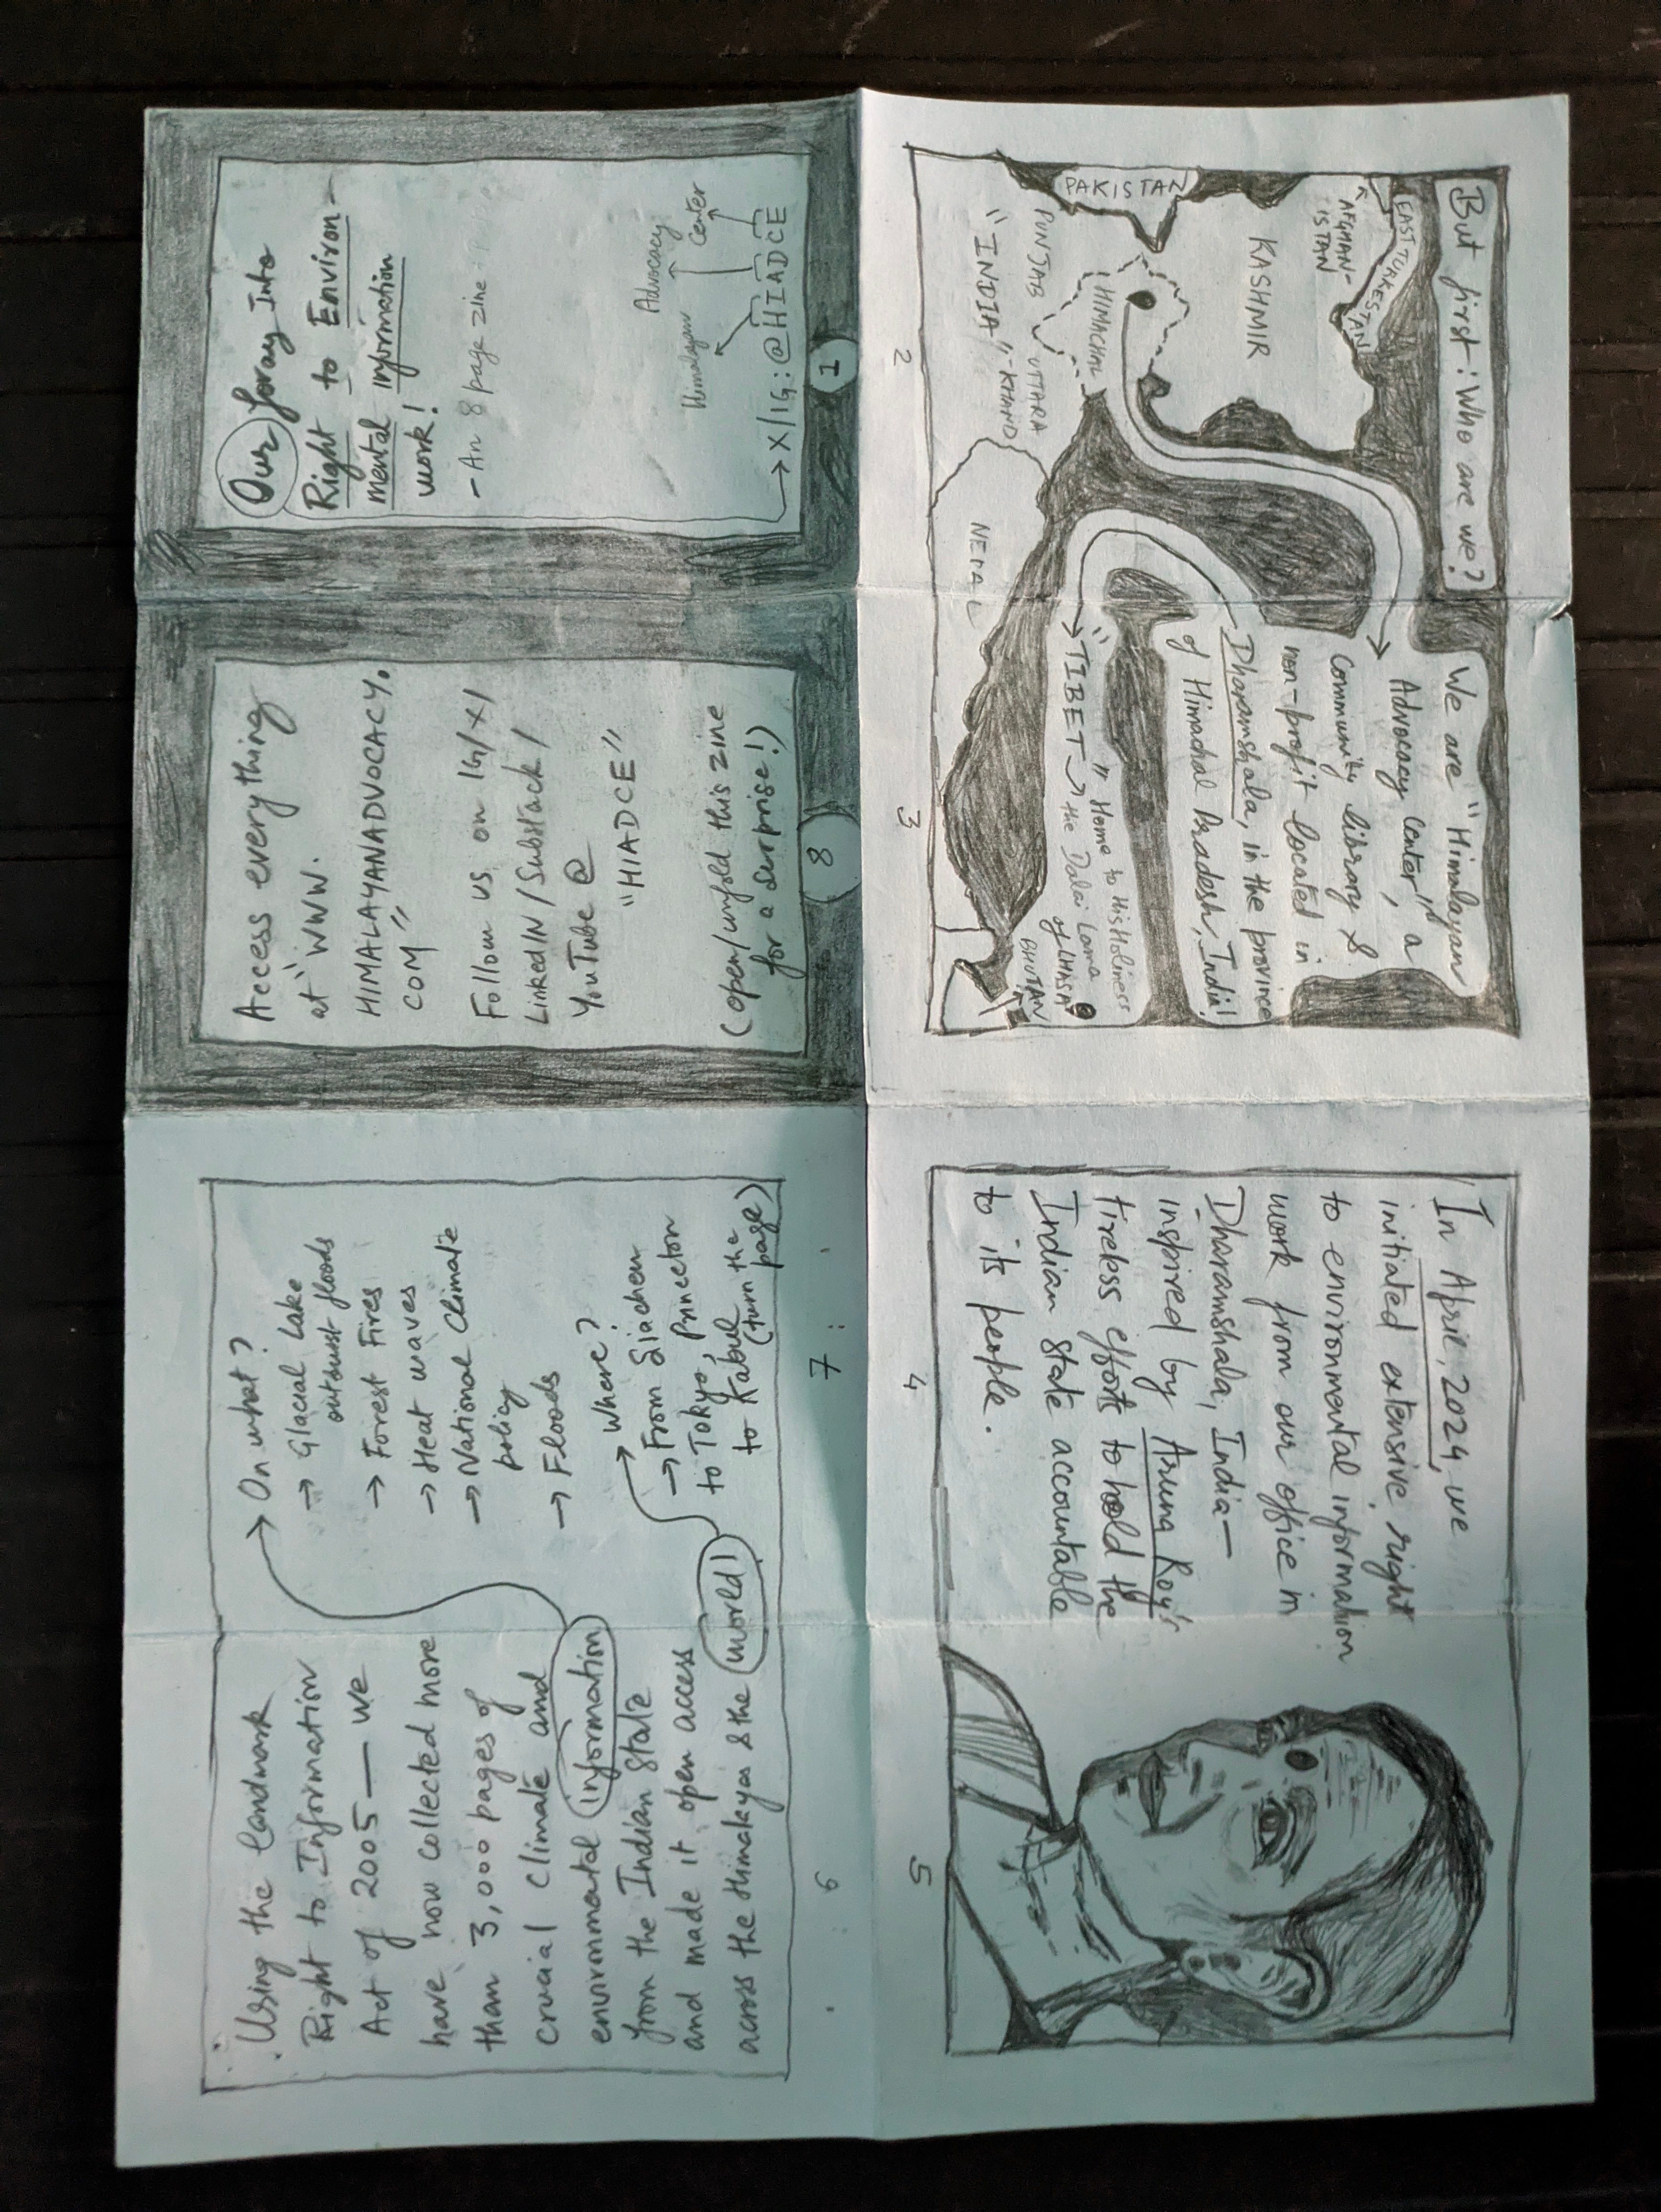 Our foray Into
Right to Environ-
mental information
work!
- An 8 page zine
Himalayan
Advocacy
Center
→ X/IG: @HIADCE
1
But first: Who are we?
EAST TURKESTAN
AFGHAN-
ISTAN
KASHMIR
PAKISTAN
HIMACHAL
PUNJAB
UTTARA
-KHAND
"INDIA"
NEPAL
2
We are "Himalayan
Advocacy Center", a
Community library &
non-profit located in
Dharamshala, in the province
of Himachal Pradesh, India!
"TIBET" → Home to His Holiness
the Dalai Lama
of LHASA
BHUTAN
3
In April, 2024, we
initiated extensive right
to environmental information
work from our office in
Dharamshala, India—
inspired by Aruna Roy's
tireless efforts to hold the
Indian State accountable
to its people.
4
5
Using the landmark
Right to Information
Act of 2005 — we
have now collected more
than 3,000 pages of
crucial climate and
environmental information
from the Indian State
and made it open access
across the Himalayas & the world!
6
→ On what?
→ Glacial Lake
outburst floods
→ Forest Fires
→ Heat waves
→ National Climate
policy
→ Floods
→ Where?
→ From Siachen
to Tokyo, Princeton
to Kabul
(turn the
page)
7
Access everything
at "WWW.
HIMALAYANADVOCACY.
COM"
Follow us on IG/X/
LinkedIN/Substack/
YouTube @
"HIADCE"
(open/unfold this zine
for a surprise!)
8